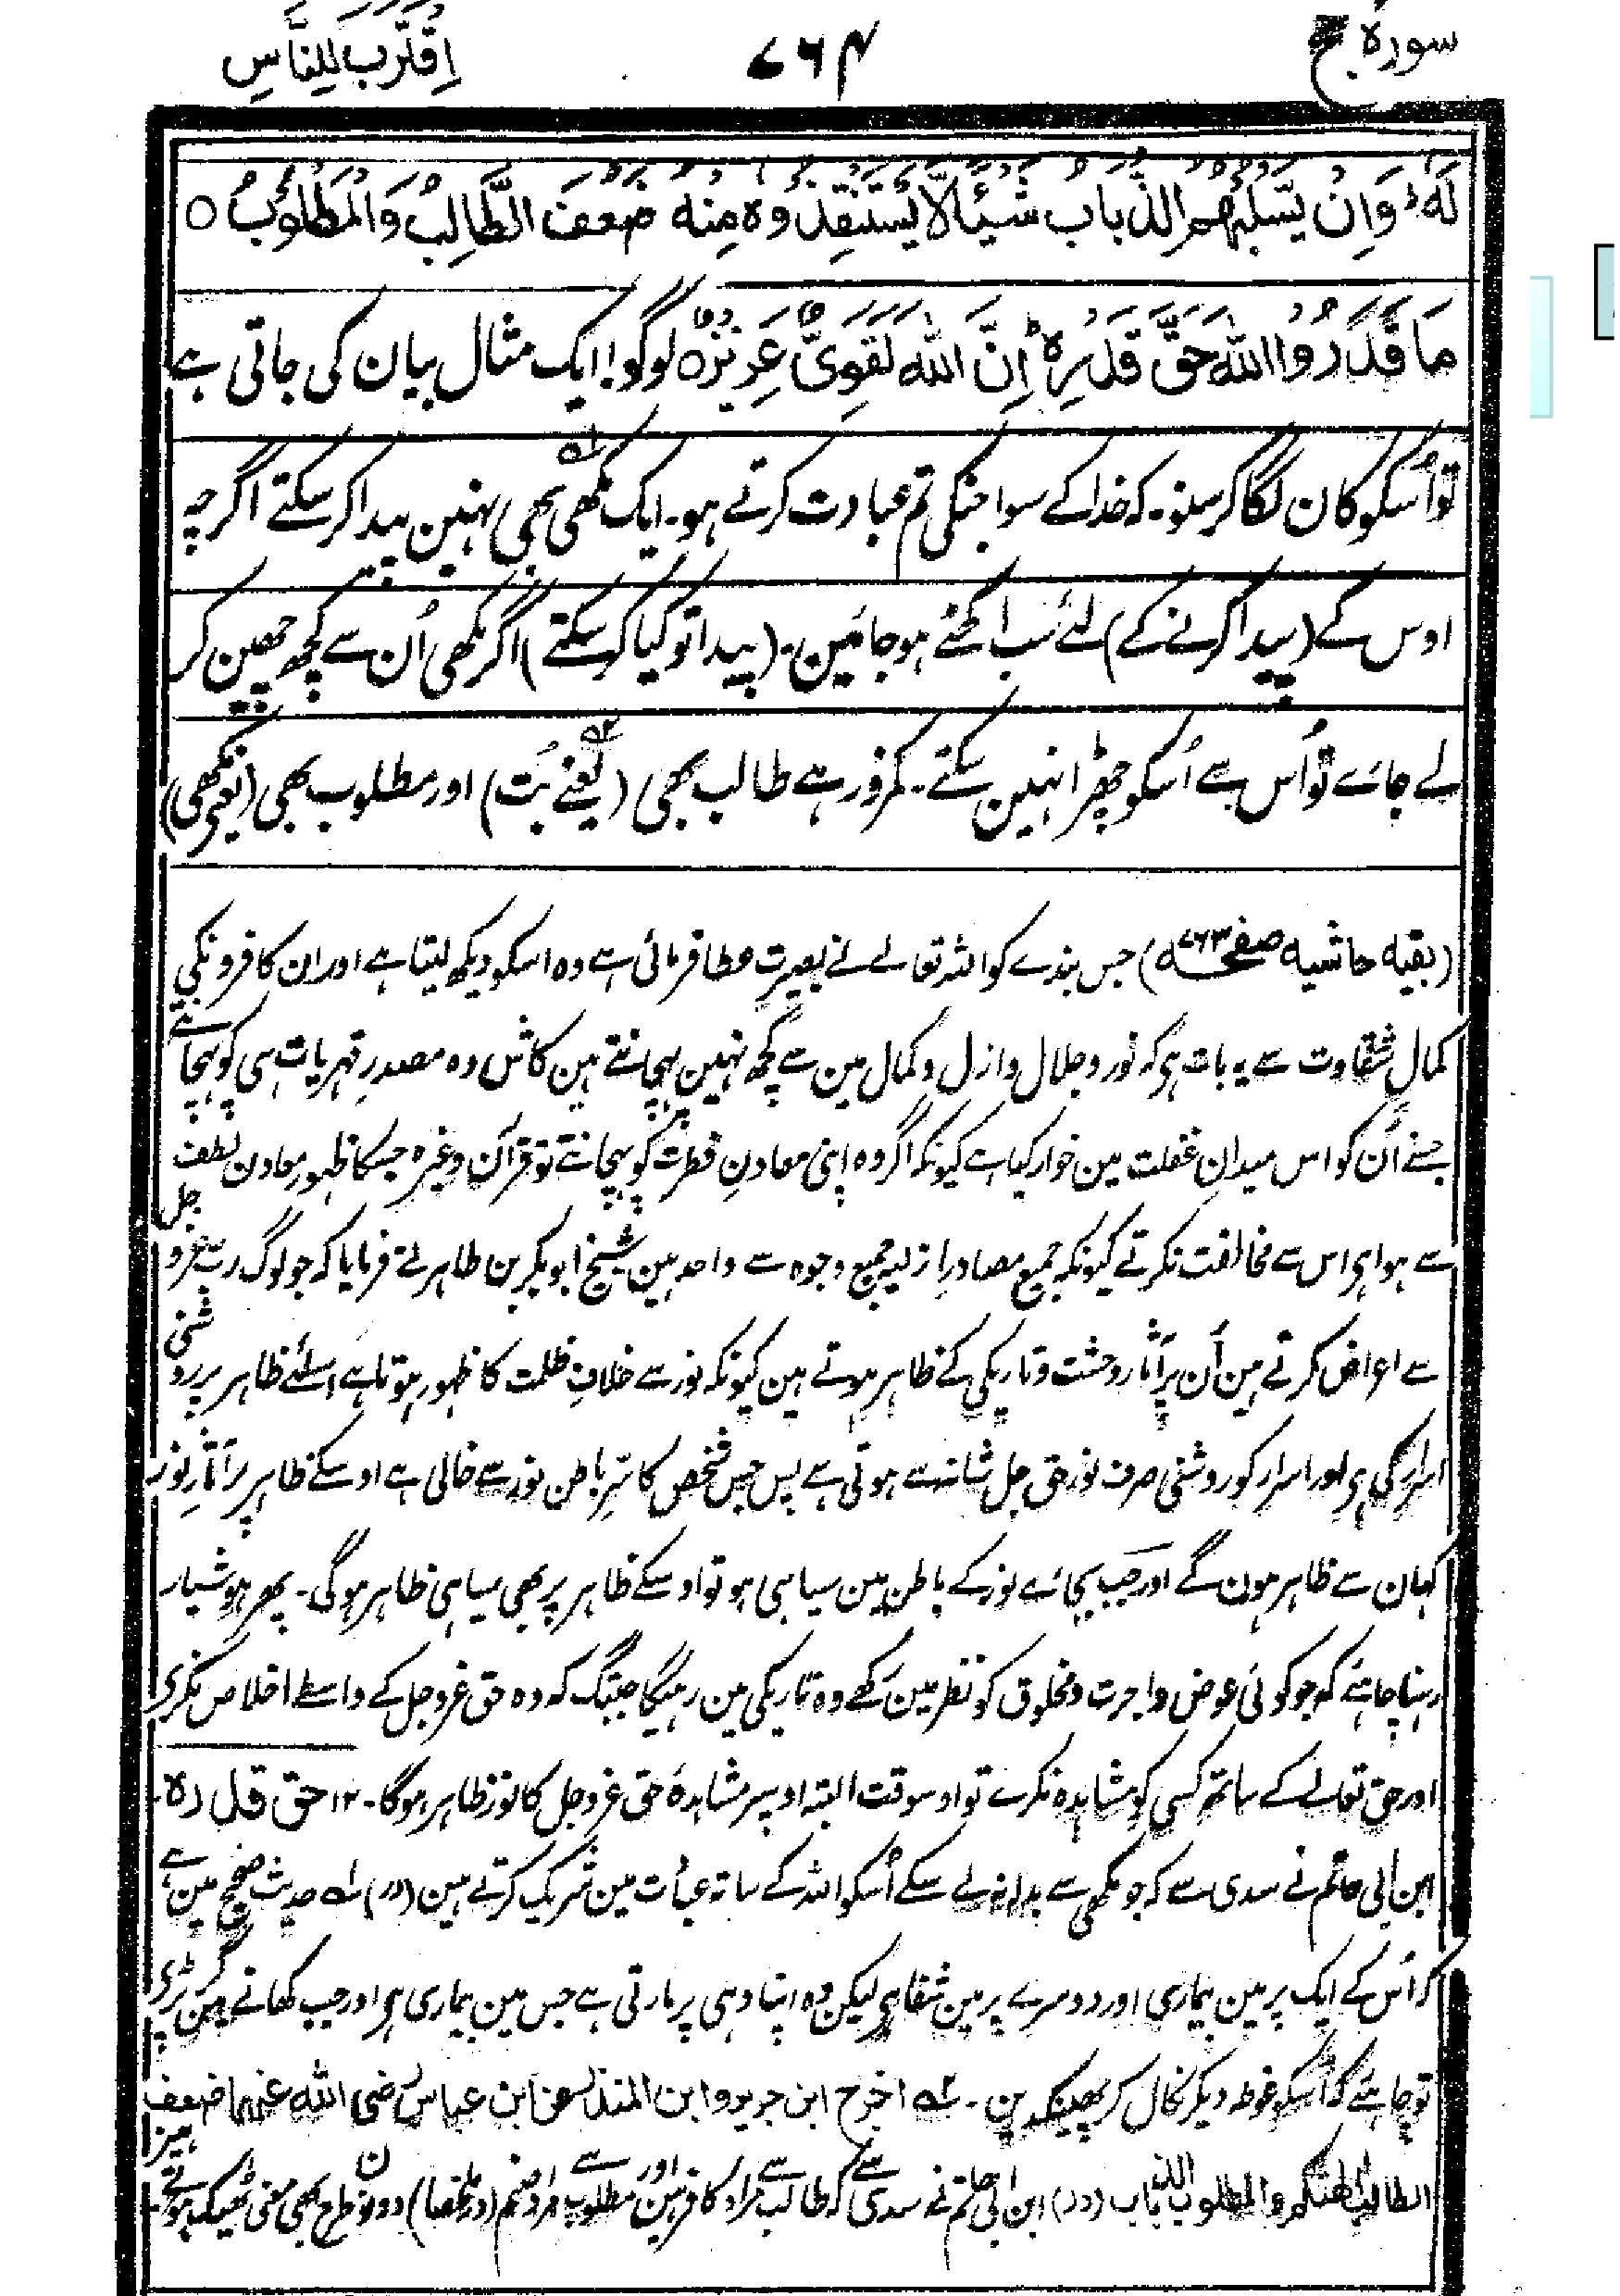 سورہ حج ۷۶۴ اِقْتَرَبَ لِلنَّاسِ
لَهٗ ؕ وَاِنْ یَّسْلُبْهُمُ الذُّبَابُ شَیْئًا لَّا یَسْتَنْقِذُوْهُ مِنْهُ ضَعُفَ الطَّالِبُ وَالْمَطْلُوْبُ ۝
مَا قَدَرُوا اللّٰهَ حَقَّ قَدْرِهٖ ؕ اِنَّ اللّٰهَ لَقَوِیٌّ عَزِیْزٌ ۝ لوگو! ایک مثال بیان کی جاتی ہے
تو اُسکو کان لگا کر سنو۔ کہ خدا کے سوا جنکی تم عبادت کرتے ہو۔ ایک مکھی ۱؎ بھی نہین پیدا کر سکتے اگرچہ
اوس کے (پیدا کرنے کے) لئے سب اکٹھے ہو جائین۔ (پیدا تو کیا کر سکتے) اگر مکھی اُن سے کچھ چھین کر
لے جاۓ تو اُس سے اُسکو چھڑا نہین سکتے۔ کمزور ہے طالب بھی (یعنے ۲؎ بُت) اور مطلوب بھی (یعنی مکھی)
(بقیہ حاشیہ صفحہ ۷۶۳) جس بندے کو اللہ تعالے نے بصیرت عطا فرمائی ہے وہ اسکو دیکھ لیتا ہے اور ان کافرونکی
کمال شقاوت سے یہ بات ہی کہ نور و جلال و ازل و کمال مین سے کچھ نہین پہچانتے ہین کاش وہ مصدرِ قہریات ہی کو پہچانتے
جسنے اُن کو اس میدانِ غفلت مین خوار کیا ہے کیونکہ اگر وہ اپنی معادنِ فطرت کو پہچانتے تو قرآن وغیرہ جسکا ظہور معادن لطف
سے ہوا ہی اس سے مخالفت نکرتے کیونکہ جمیع مصادرِ ازلیہ جمیع وجوہ سے واحد ہین شیخ ابوبکر بن طاہر نے فرمایا کہ جو لوگ رب عز و جل
سے اعراض کرتے ہین اُن پر آثار وحشت و تاریکی کے ظاہر ہوتے ہین کیونکہ نور سے خلاف ظلمت کا ظہور ہوتا ہے اسلئے ظاہر پر روشنی
اسرار کی ہی اور اسرار کو روشنی صرف نور حق جل شانہ سے ہوتی ہے پس جس شخص کا سرِّ باطن نور سے خالی ہے اوسکے ظاہر پر آثارِ نور
کہان سے ظاہر ہون گے اور جب بجاۓ نور کے باطن مین سیاہی ہو تو اوسکے ظاہر پر بھی سیاہی ظاہر ہو گی۔ پھر ہوشیار
رہنا چاہئے کہ جو کوئی عوض و اجرت و مخلوق کو نظر مین رکھے وہ تاریکی مین رہیگا جبتک کہ وہ حق عزوجل کے واسطے اخلاص نکری
اور حق تعالے کے ساتھ کسی کو مشاہدہ نکرے تو اوسوقت البتہ اوسپر مشاہدۂ حق عزوجل کا نور ظاہر ہوگا۔ ۱۲ حق قدرہ۔
ابن ابی حاتم نے سدی سے کہ جو مکھی سے بدلہ نہ لے سکے اُسکو اللہ کے ساتہ عبادت مین شریک کرتے ہین (در) ۱؎ حدیث صحیح مین ہے
کہ اُس کے ایک پر مین بیماری اور دوسرے پر مین شفا ہی لیکن وہ اپنا وہی پر مارتی ہے جس مین بیماری ہی اور جب کھانے مین گر پڑی
تو چاہئے کہ اُسکو غوطہ دیکر نکال کر پھینکدین۔ ۲؎ اخرج ابن جریر و ابن المنذر عن ابن عباس رضی اللہ عنہما ضعف
الطالب الھتکم والمطلوب الذباب (در) ابن ابی حاتم نے سدی سے کہ طالب سے مراد کافر ہین اور مطلوب سے مراد صنم (در ملخصا) دونون طرح بھی معنی ٹھیک ہوتے ہین